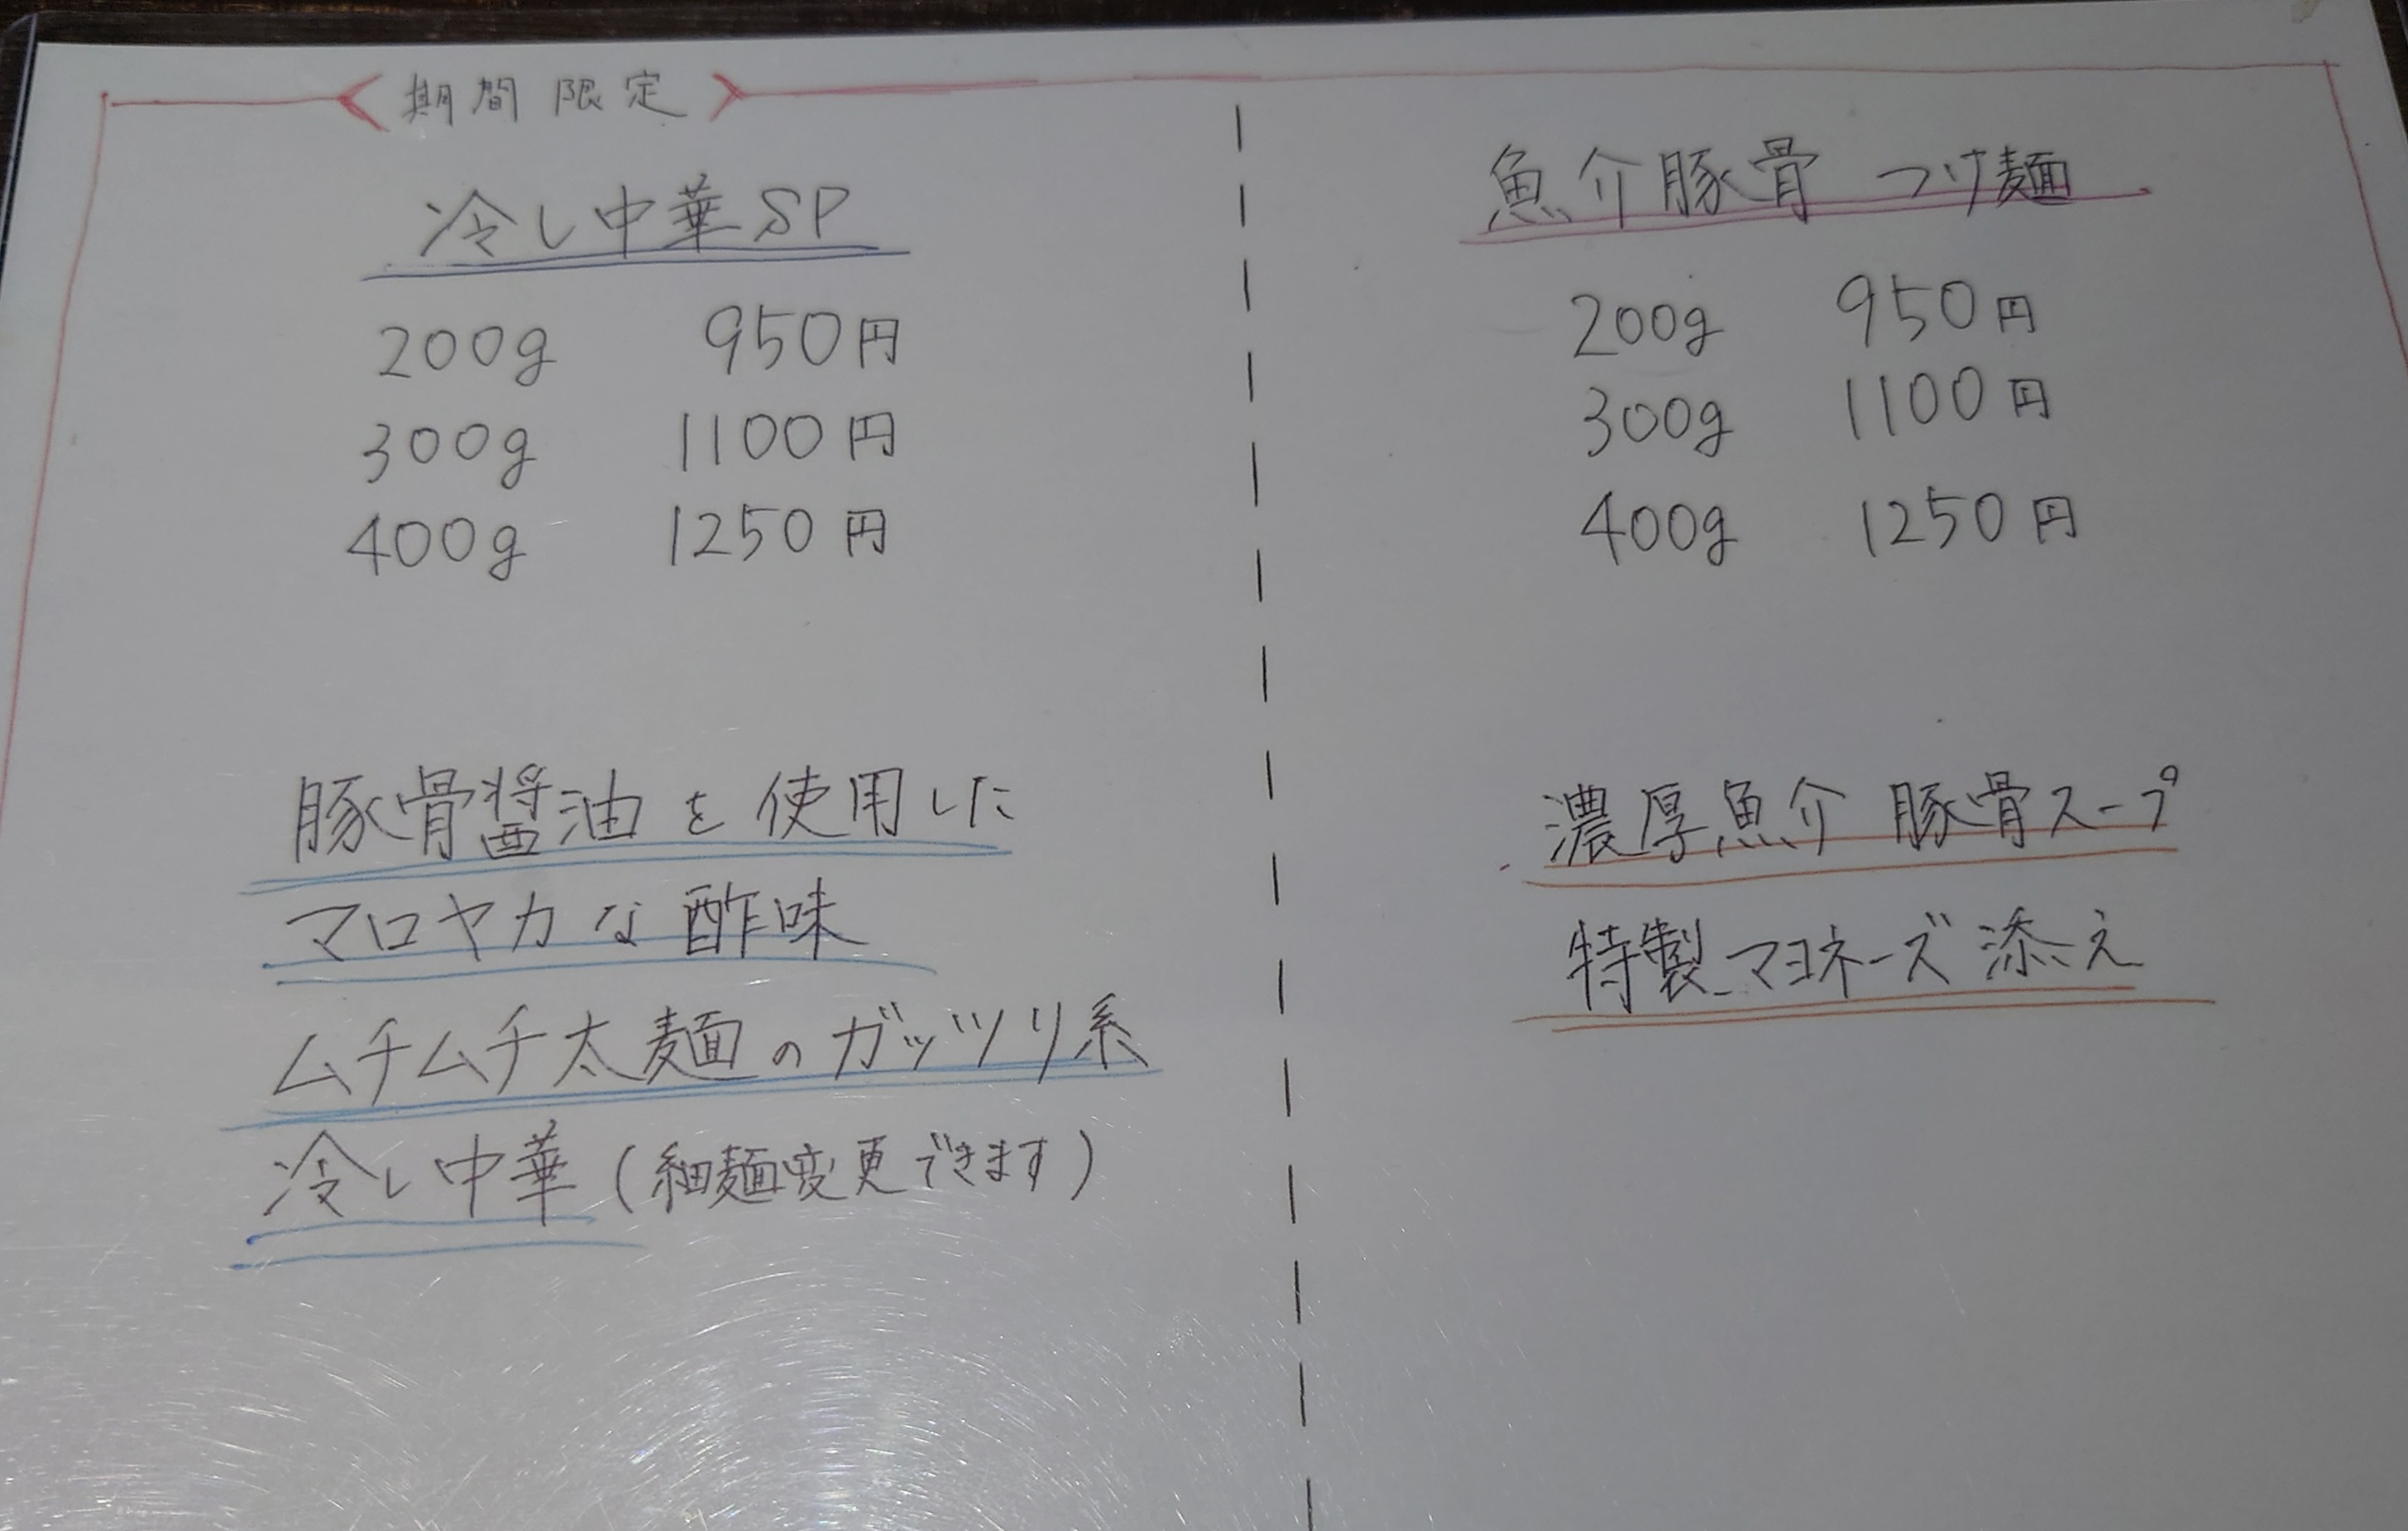 期間限定
冷し中華SP
200g 950円
300g 1100円
400g 1250円
豚骨醤油を使用した
マロヤカな酢味
ムチムチ太麺のガッツリ系
冷し中華(細麺変更できます)
魚介豚骨 つけ麺
200g 950円
300g 1100円
400g 1250円
濃厚魚介 豚骨スープ
特製マヨネーズ添え